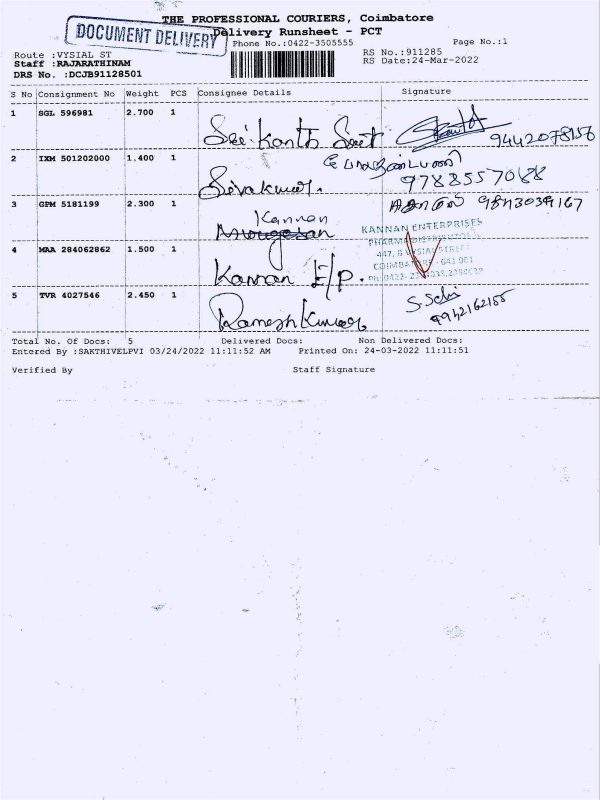 THE PROFESSIONAL COURIERS, Coimbatore
DOCUMENT DELIVERY
Delivery Runsheet - PCT
Phone No.:0422-3505555
Page No.:1
Route :VYSIAL ST
RS No.:911285
Staff :RAJARATHINAM
RS Date:24-Mar-2022
DRS No. :DCJB91128501
S No Consignment No Weight PCS Consignee Details Signature
1 SGL 596981 2.700 1
9442078156
2 IXM 501202000 1.400 1
Sivakumar. 9788557068
3 GPM 5181199 2.300 1
9843039167
Kannan
Murugesan
KANNAN ENTERPRISES
4 MAA 284062862 1.500 1
Kannan E/p.
5 TVR 4027546 2.450 1
Ramesh Kumar
Total No. Of Docs: 5 Delivered Docs: Non Delivered Docs:
Entered By :SAKTHIVELPVI 03/24/2022 11:11:52 AM Printed On: 24-03-2022 11:11:51
Verified By Staff Signature